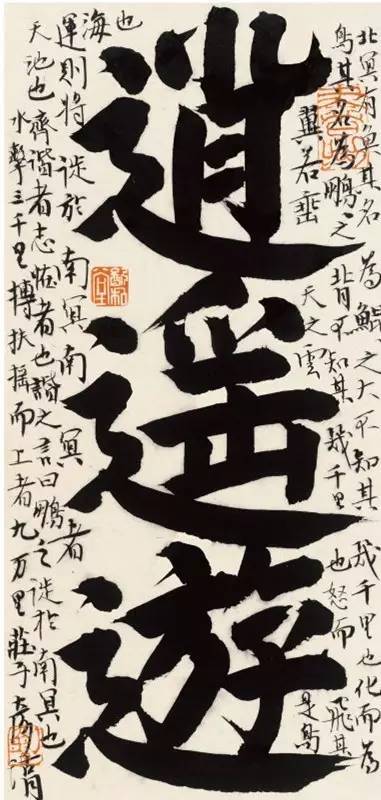 逍遙遊
北冥有魚其名為鯤之大不知其幾千里也化而為
鳥其名為鵬之背不知其幾千里也怒而飛其
翼若垂天之雲是鳥
也
海運則將徙於南冥南冥者
天池也齊諧者志怪者也諧之言曰鵬之徙於南冥也
水擊三千里摶扶搖而上者九万里莊子